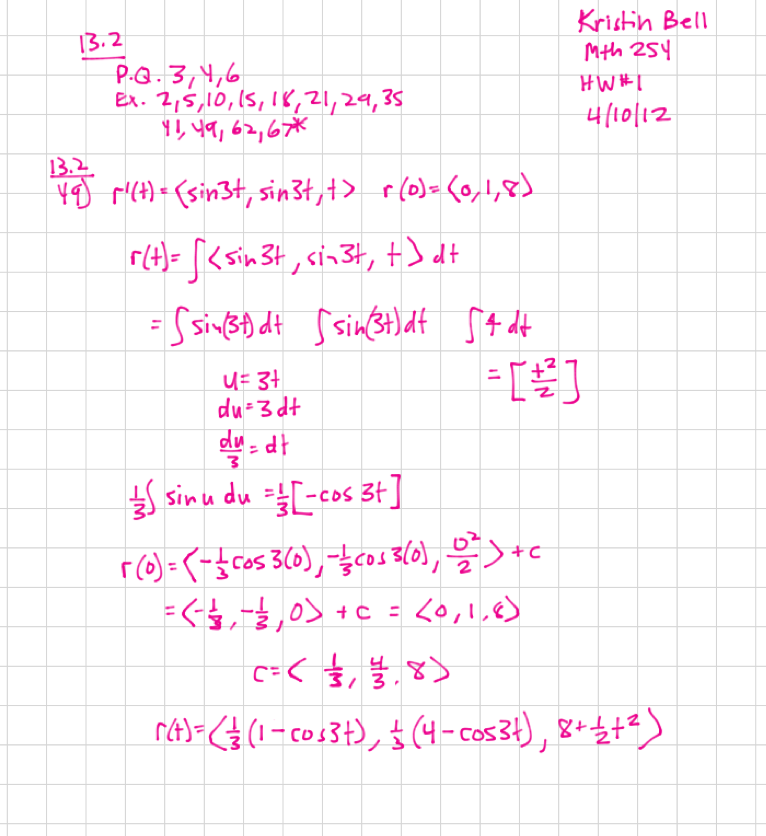 Kristin Bell
Mth 254
HW#1
4/10/12
13.2
P.Q. 3, 4, 6
Ex. 2, 5, 10, 15, 18, 21, 29, 35
41, 49, 62, 67*
13.2
49) r'(t) = <sin3t, sin3t, t> r(0) = <0, 1, 8>
r(t) = ∫<sin3t, sin3t, t> dt
= ∫sin(3t)dt ∫sin(3t)dt ∫t dt
u = 3t = [t²/2]
du = 3 dt
du/3 = dt
1/3 ∫ sin u du = 1/3[-cos 3t]
r(0) = <-1/3 cos 3(0), -1/3 cos 3(0), 0²/2> + c
= <-1/3, -1/3, 0> + c = <0, 1, 8>
c = <1/3, 4/3, 8>
r(t) = <1/3(1-cos3t), 1/3(4-cos3t), 8+1/2t²>